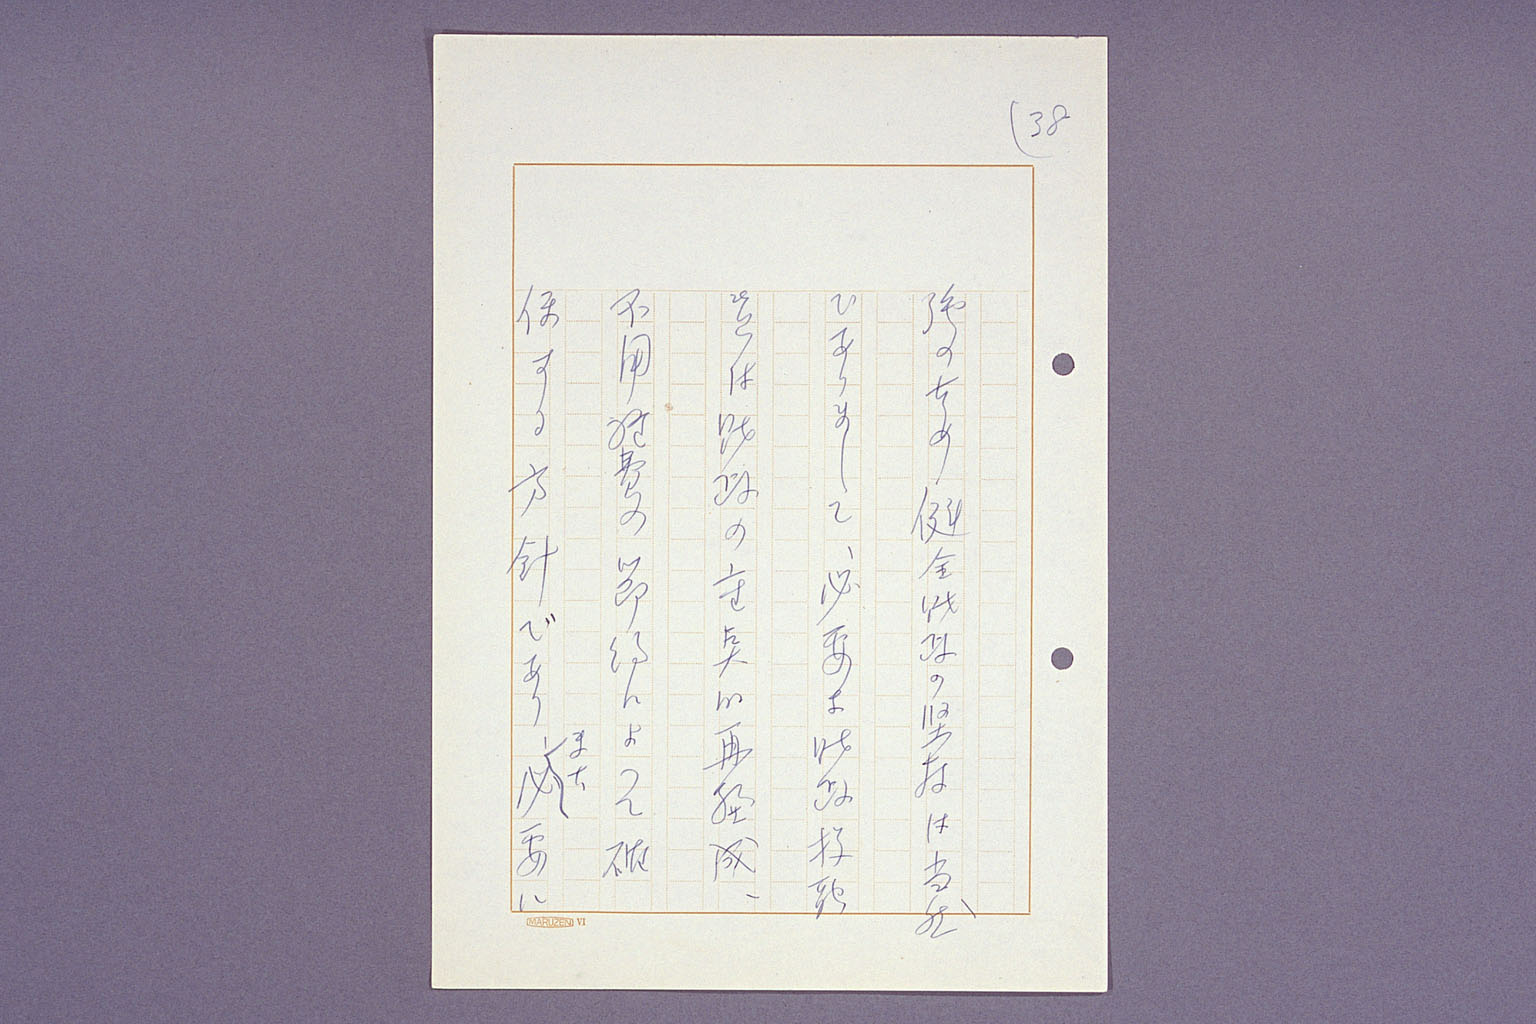 (38
強のため健全財政の堅持は当然
でありまして、必要な財政投融
資は財政の重点的再編成、
不用経費の節約によって確
保する方針であり、また必要に
MARUZEN VI